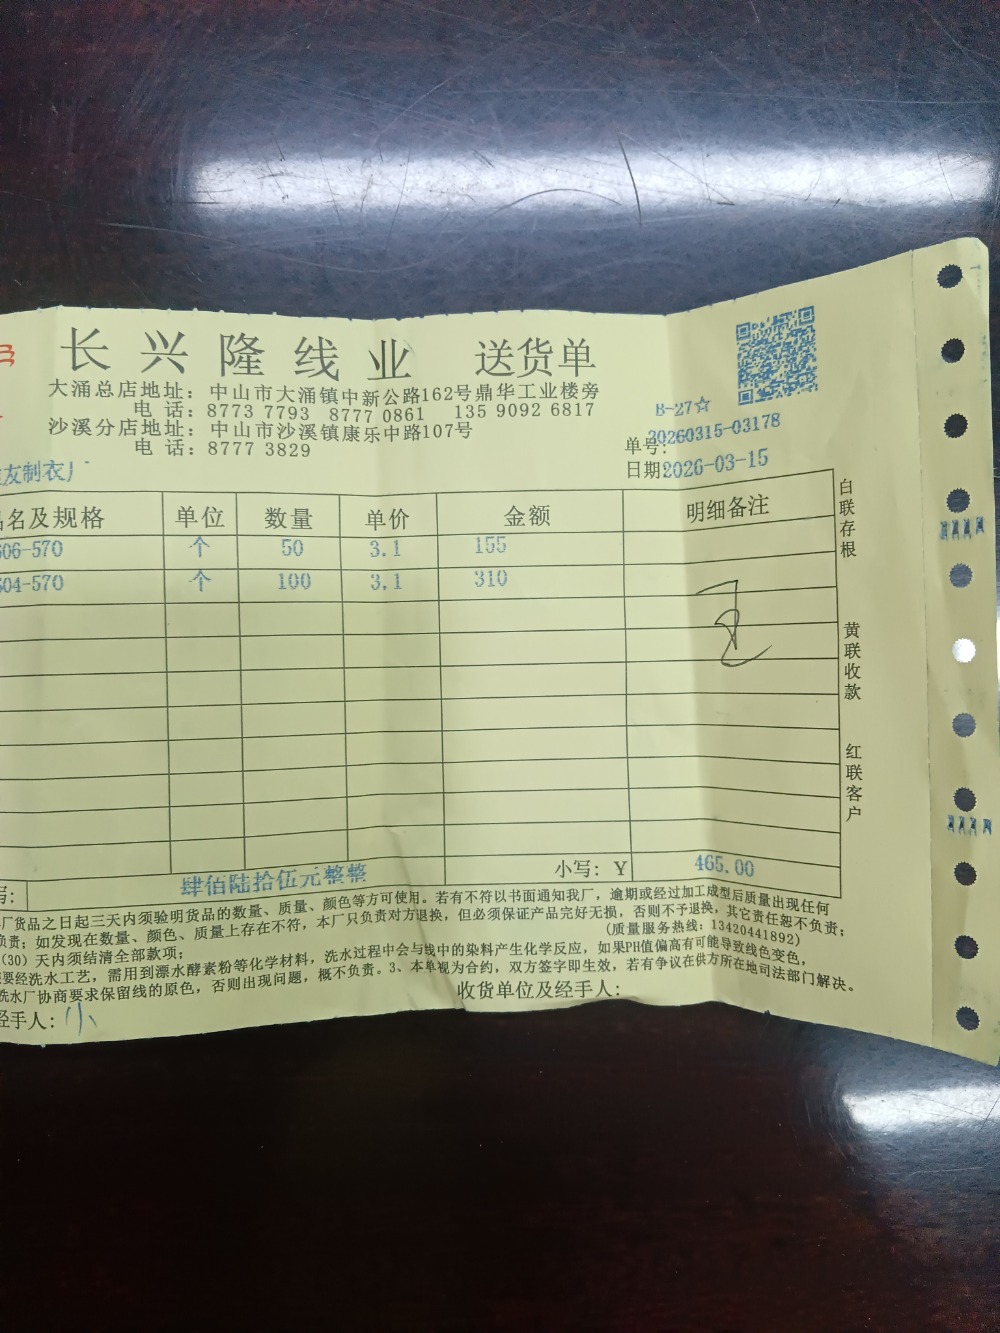 长兴隆线业 送货单
大涌总店地址：中山市大涌镇中新公路162号鼎华工业楼旁
电话：8773 7793 8777 0861 135 9092 6817
沙溪分店地址：中山市沙溪镇康乐中路107号
电话：8777 3829
B-27☆
单号：20260315-03178
日期2026-03-15
友制衣厂
名及规格 单位 数量 单价 金额 明细备注
06-570 个 50 3.1 155
04-570 个 100 3.1 310
肆佰陆拾伍元整整 小写：Y 465.00
厂货品之日起三天内须验明货品的数量、质量、颜色等方可使用。若有不符以书面通知我厂，逾期或经过加工成型后质量出现任何
负责；如发现在数量、颜色、质量上存在不符，本厂只负责对方退换，但必须保证产品完好无损，否则不予退换，其它责任恕不负责；
(30)天内须结清全部款项； (质量服务热线：13420441892)
要经洗水工艺，需用到漂水酵素粉等化学材料，洗水过程中会与线中的染料产生化学反应，如果PH值偏高有可能导致线色变色，
洗水厂协商要求保留线的原色，否则出现问题，概不负责。3、本单视为合约，双方签字即生效，若有争议在供方所在地司法部门解决。
经手人：小 收货单位及经手人：
白联存根
黄联收款
红联客户